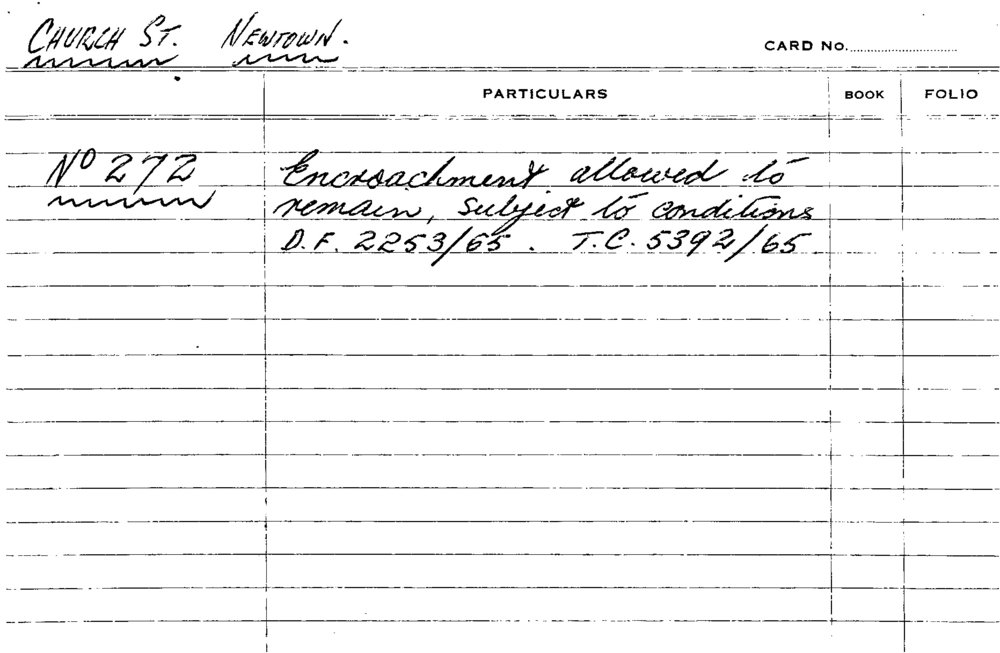 CHURCH ST. NEWTOWN.
CARD No.
PARTICULARS BOOK FOLIO
No 272 Encroachment allowed to
remain, subject to conditions
D.F. 2253/65. T.C. 5392/65.